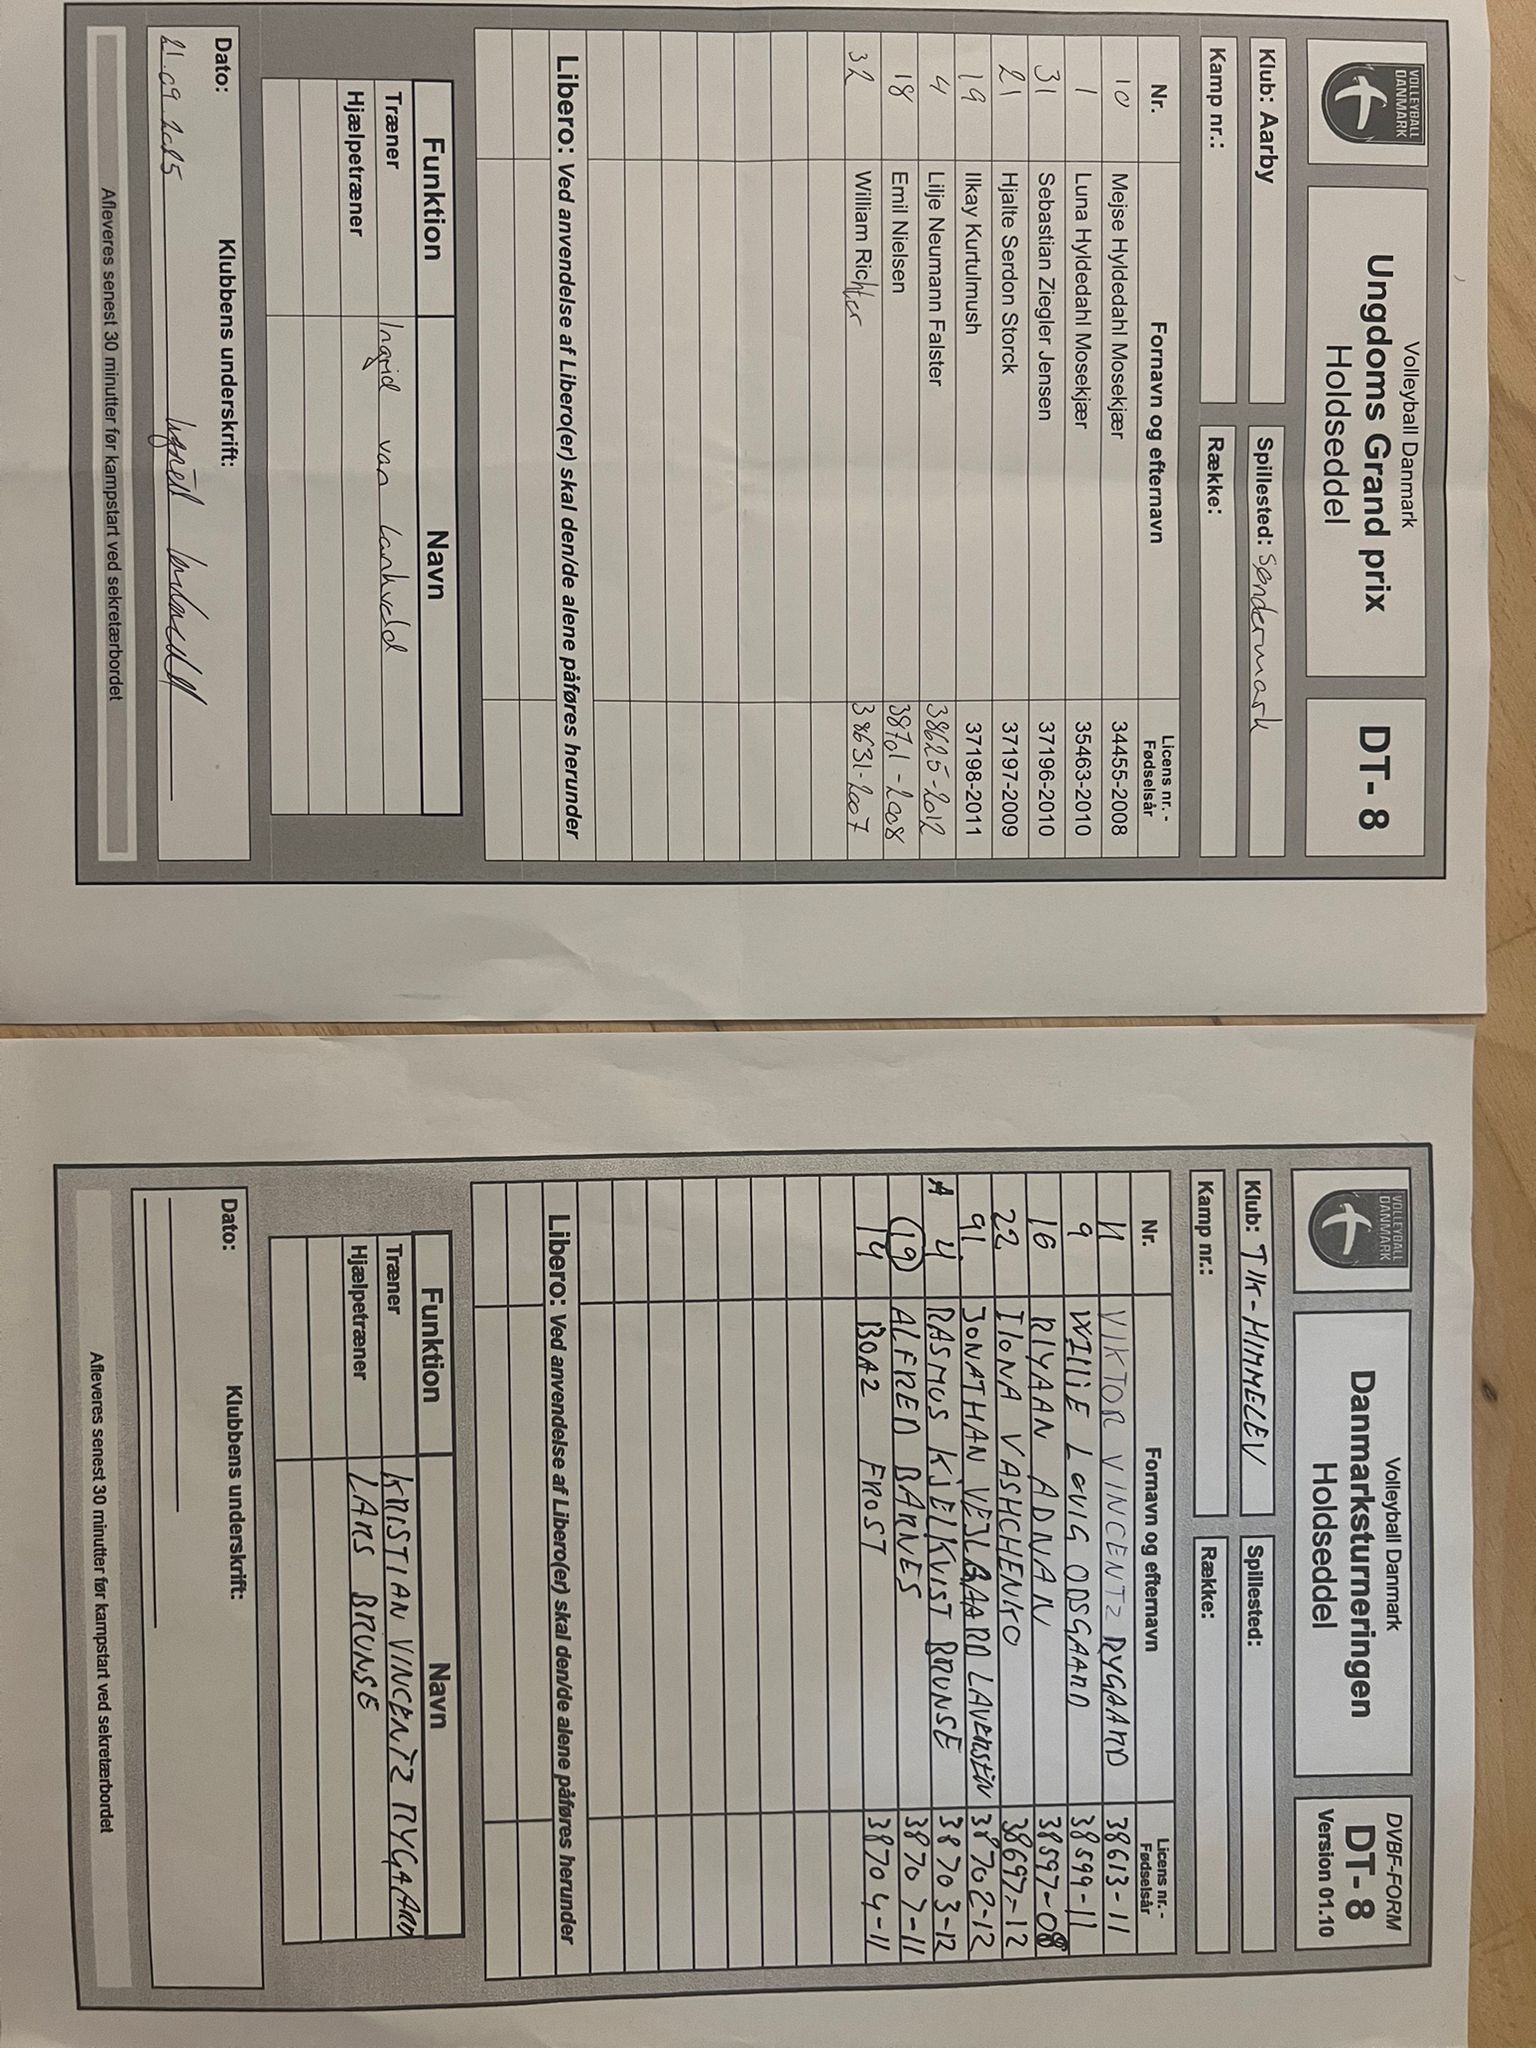 VOLLEYBALL
DANMARK
Volleyball Danmark
Ungdoms Grand prix
Holdseddel
DT- 8
Klub: Aarby
Spillested: Søndermark
Kamp nr.:
Række:
Nr.
Fornavn og efternavn
Licens nr. -
Fødselsår
10 Mejse Hyldedahl Mosekjær 34455-2008
1 Luna Hyldedahl Mosekjær 35463-2010
31 Sebastian Ziegler Jensen 37196-2010
21 Hjalte Serdon Storck 37197-2009
19 Ilkay Kurtulmush 37198-2011
4 Lilje Neumann Falster 38625-2012
18 Emil Nielsen 38701-2008
32 William Richter 38631-2007
Libero: Ved anvendelse af Libero(er) skal den/de alene påføres herunder
Funktion Navn
Træner Ingrid van Lankveld
Hjælpetræner
Dato: Klubbens underskrift:
21.09.2025
Afleveres senest 30 minutter før kampstart ved sekretærbordet
VOLLEYBALL
DANMARK
Volleyball Danmark
Danmarksturneringen
Holdseddel
DVBF-FORM
DT- 8
Version 01.10
Klub: TIK-HIMMELEV
Spillested:
Kamp nr.:
Række:
Nr.
Fornavn og efternavn
Licens nr. -
Fødselsår
11 VIKTOR VINCENTZ RYGAARD 38613-11
9 WILLIE LOVIG ODSGAARD 38599-11
16 RIYAAN ADNAN 38597-08
22 ILONA VASHCHENKO 38697-12
91. JONATHAN VEJLGAARD LAVERSEN 38702-12
A 4 RASMUS KJELKVIST BRUNSE 38703-12
19 ALFRED BARNES 38707-11
14 BOAZ FROST 38704-11
Libero: Ved anvendelse af Libero(er) skal den/de alene påføres herunder
Funktion Navn
Træner KRISTIAN VINCENTZ RYGAARD
Hjælpetræner LARS BRUNSE
Dato: Klubbens underskrift:
Afleveres senest 30 minutter før kampstart ved sekretærbordet